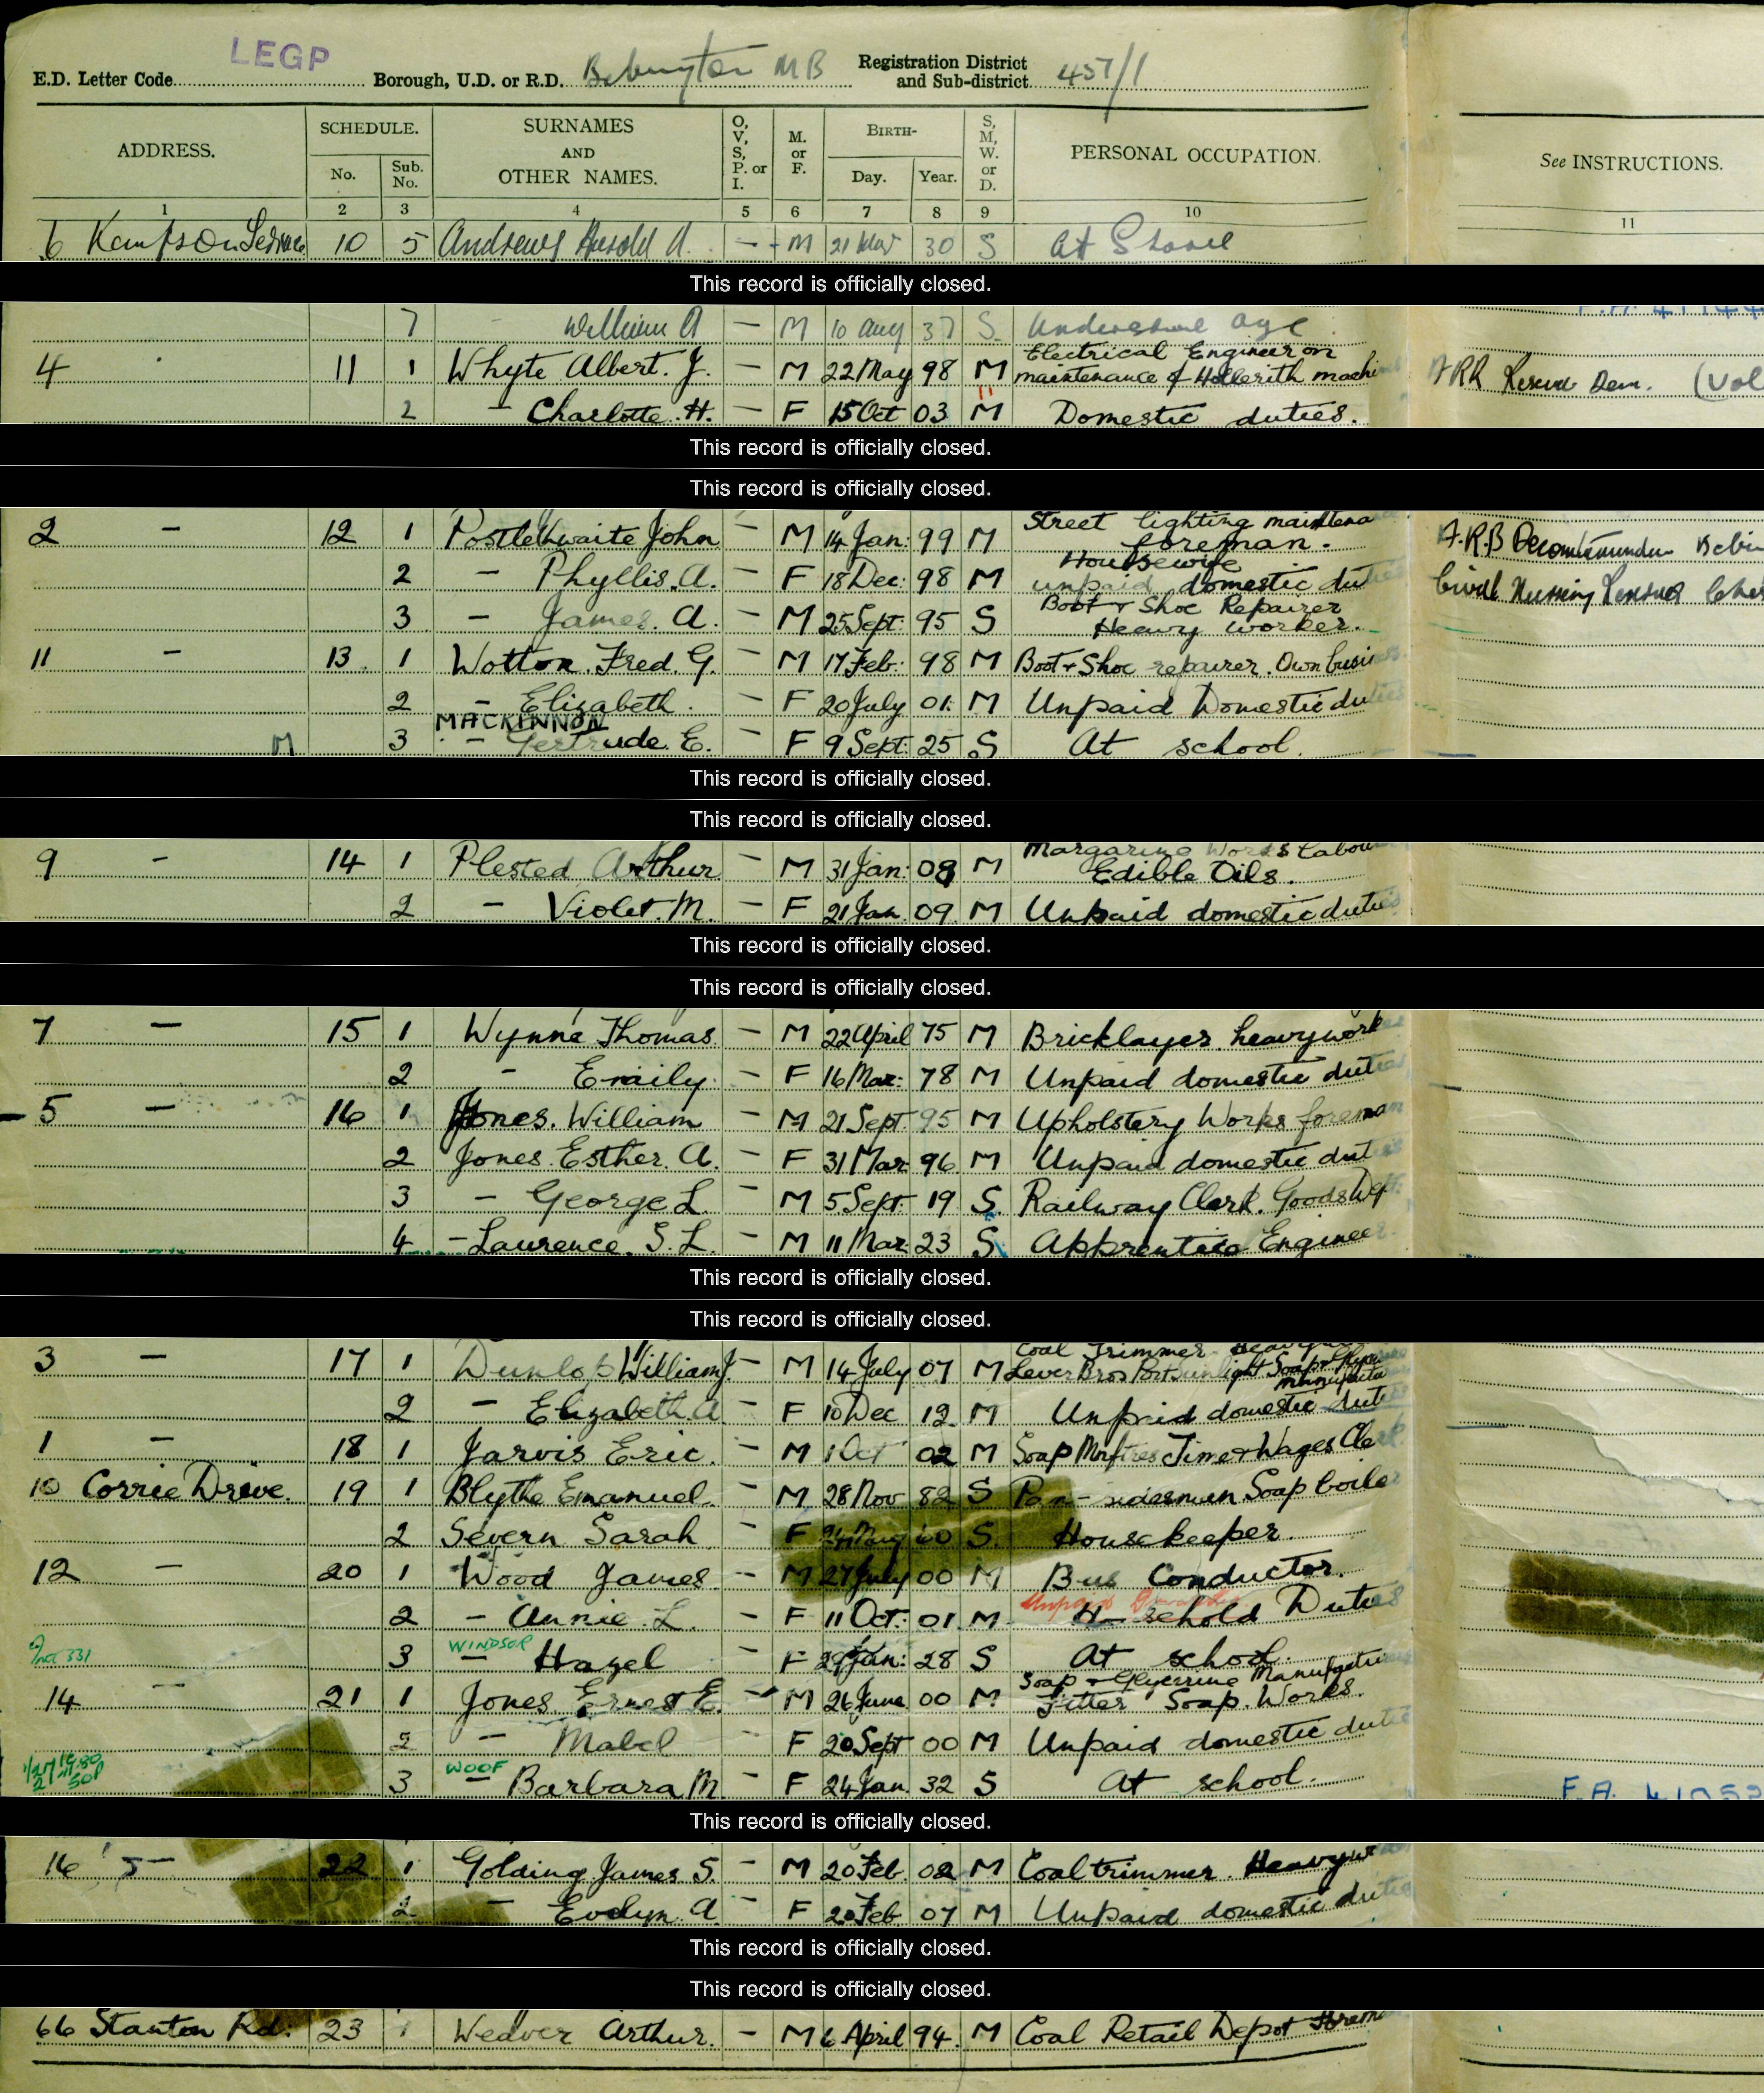 LEGP
E.D. Letter Code Borough, U.D. or R.D. Bebington MB Registration District and Sub-district 457/1
ADDRESS. SCHEDULE. No. Sub. No. SURNAMES AND OTHER NAMES. O, V, S, P. or I. M. or F. BIRTH- Day. Year. S, M, W. or D. PERSONAL OCCUPATION. See INSTRUCTIONS.
1 2 3 4 5 6 7 8 9 10 11
6 10 5 Andrews Harold A. — M 21 30 S At
This record is officially closed.
7 William A — M 10 Aug 37 S Under age
4 11 1 Whyte Albert. J. — M 22 May 98 M Electrical Engineer on maintenance of Hollerith machi ARP (Vol
2 — Charlotte. H. — F 15 Oct 03 M Domestic duties.
This record is officially closed.
This record is officially closed.
2 — 12 1 Postlethwaite John — M 14 Jan: 99 M Street lighting maintena foreman.
2 — Phyllis. A. — F 18 Dec: 98 M Housewife unpaid domestic duties Civil Nursing Reserve
3 — James. A. — M 25 Sept: 95 S Boot & Shoe Repairer Heavy worker.
11 — 13 1 Wotton. Fred. G. — M 17 Feb: 98 M Boot & Shoe repairer. Own business
2 — Elizabeth. — F 20 July 01. M Unpaid Domestic duties
MACKINNON
M 3 — Gertrude. E. — F 9 Sept: 25 S At school.
This record is officially closed.
This record is officially closed.
9 — 14 1 Plested Arthur — M 31 Jan: M Margarine Works Labou Edible Oils.
2 — Violet. M. — F 21 Jan. 09. M Unpaid domestic duties
This record is officially closed.
This record is officially closed.
7 — 15 1 Wynne Thomas — M 22 April 75 M Bricklayer heavy work
2 — Emily. — F 16 Mar: 78 M Unpaid domestic duties
5 — 16 1 Jones. William — M 21 Sept 95 M Upholstery Works foreman
2 Jones. Esther. A. — F 31 Mar 96 M Unpaid domestic dut
3 — George L. — M 5 Sept: 19 S. Railway Clerk. Goods Dept.
4 — Laurence. S. L. — M 11 Mar: 23 S. Apprentice Engineer
This record is officially closed.
This record is officially closed.
3 — 17 1 Dunlop William J. — M 14 July 07 M Coal Trimmer Lever Bros Port Sunlight Soap
2 — Elizabeth. A — F 10 Dec 12 M Unpaid domestic dut
1 — 18 1 Jarvis Eric. — M 1 Oct 02 M Soap Time & Wages Clerk
10 Corrie Drive. 19 1 Blythe Emanuel. — M 28 Nov 82 S Soap boiler
2 Severn Sarah — F S. Housekeeper.
12 — 20 1 Wood James — M 27 July 00 M Bus Conductor.
2 — Annie. L. — F 11 Oct: 01. M Unpaid Household Duties
WINDSOR
3 — Hazel — F 29 Jan: 28 S At school.
14 — 21 1 Jones Ernest E. — M 26 June 00 M. Soap & Glycerine Manufactu Fitter Soap. Works.
2 — Mabel — F 20 Sept 00 M Unpaid domestic dutie
WOOF
3 — Barbara M. F 24 Jan 32 S At school.
This record is officially closed.
16 — 22 1 Golding James S. — M 20 Feb. 02 M Coal trimmer. Heavy
2 — Evelyn. A. — F 20 Feb. 07 M Unpaid domestic dutie
This record is officially closed.
This record is officially closed.
66 Stanton Rd. 23 1 Weaver Arthur. — M 6 April 94. M Coal Retail Depot